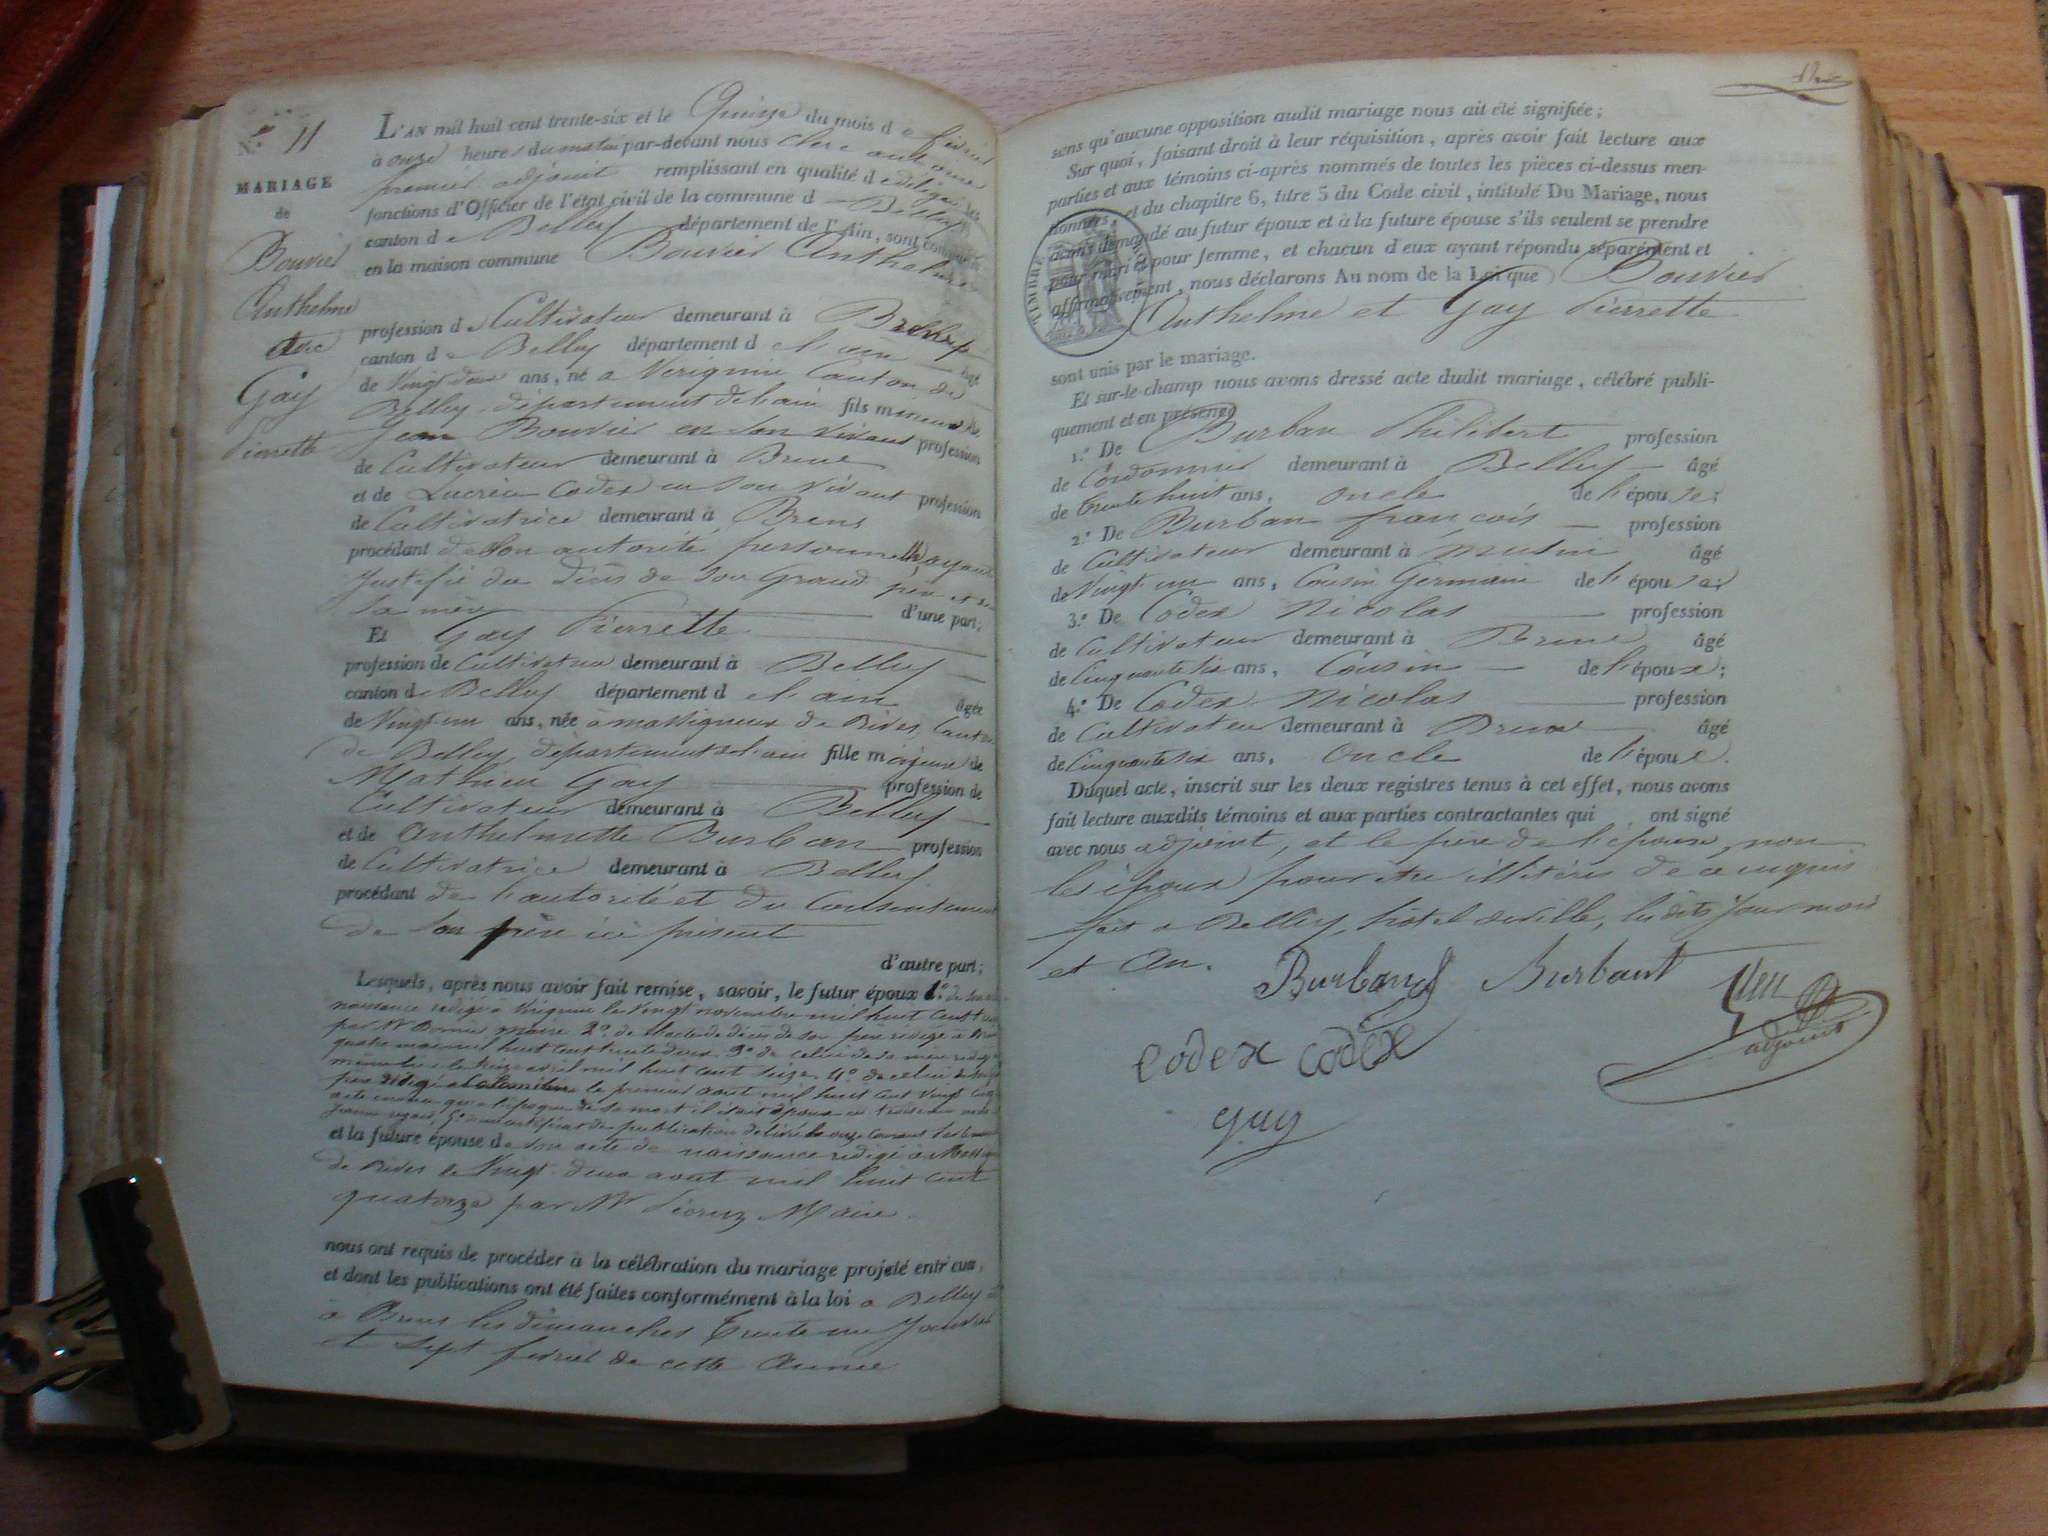 N.º 11
MARIAGE
de
Bouvier
Anthelme
avec
Gay
Pierrette
L'AN mil huil cent trente-six et le Quinze du mois d e février
à onze heures du matin par-devant nous
premier adjoint remplissant en qualité d e les
fonctions d'Officier de l'état civil de la commune d Belley
canton d e Belley département de l'Ain, sont comparus
en la maison commune Bouvier Anthelme
profession d e Cultivateur demeurant à
canton d e Belley département d e l'ain âgé
de Vingt deux ans, né a Virignin Canton de
Belley département de l'ain fils mineur de
Jean Bouvier en son vivant profession
de Cultivateur demeurant à Brens
et de Lucrèce Codex en son vivant profession
de Cultivatrice demeurant à Brens
procédant de son autorité personnelle, ayant
Justifié du Décès de son Grand père et de
sa mère d'une part;
Et Gay Pierrette
profession de Cultivatrice demeurant à Belley
canton d e Belley département d e l'ain âgée
de Vingt un ans, née à massigneux de Rives, Canton
de Belley, département de l'ain fille majeure de
Mathieu Gay profession de
Cultivateur demeurant à Belley
et de anthelmette Burban profession
de Cultivatrice demeurant à Belley
procédant de l'autorité et du Consentement
de son père ici présent
d'autre part;
Lesquels, après nous avoir fait remise, savoir, le futur époux 1.º de son acte
naissance rédigé a Virignin le Vingt novembre mil huit cent
par Mr maire 2º. de l'acte de décès de son père rédigé à
mil huit cent trente deux 3º de celui de sa mère
le avril mil huit cent seize 4º. de celui de
père rédigé a le premier aout mil huit cent vingt
acte qu'a l'époque de sa mort il était époux en
5º certificat de publication délivré le onze Courant
et la future épouse d e son acte de naissance rédigé à
de Rives le Vingt deux aout mil huit cent
quatorze par Mr Maire.
nous ont requis de procéder à la célébration du mariage projeté entr'eux,
et dont les publications ont été faites conformément à la loi a Belley
à Brens les dimanches Trente un Janvier
et sept février de cette Année
sens qu'aucune opposition audit mariage nous ait été signifiée;
Sur quoi, faisant droit à leur réquisition, après avoir fait lecture aux
parties et aux témoins ci-après nommés de toutes les pièces ci-dessus men-
tionnées, et du chapitre 6, titre 5 du Code civil, intitulé Du Mariage, nous
avons demandé au futur époux et à la future épouse s'ils veulent se prendre
pour mari et pour femme, et chacun d'eux ayant répondu séparément et
affirmativement, nous déclarons Au nom de la Loi que Bouvier
TIMBRE
Anthelme et Gay Pierrette
sont unis par le mariage.
Et sur-le-champ nous avons dressé acte dudit mariage, célébré publi-
quement et en présence
1.º De Burban Philibert profession
de Cordonnier demeurant à Belley âgé
de trente huit ans, oncle de l'épouse;
2.º De Burban françois profession
de Cultivateur demeurant à musin âgé
de Vingt un ans, Cousin Germain de l'épouse;
3.º De Codex Nicolas profession
de Cultivateur demeurant à Brens âgé
de Cinquante six ans, Cousin de l'époux;
4.º De Codex Nicolas profession
de Cultivateur demeurant à Brens âgé
de Cinquante six ans, oncle de l'époux.
Duquel acte, inscrit sur les deux registres tenus à cet effet, nous avons
fait lecture auxdits témoins et aux parties contractantes qui ont signé
avec nous adjoint, et le père de l'épouse, non
les époux pour être illitérés de ce enquis
fait a Belley, hotel de ville, les dits Jour mois
et An.
Burband Burbant
adjoint
Codex Codex
gay